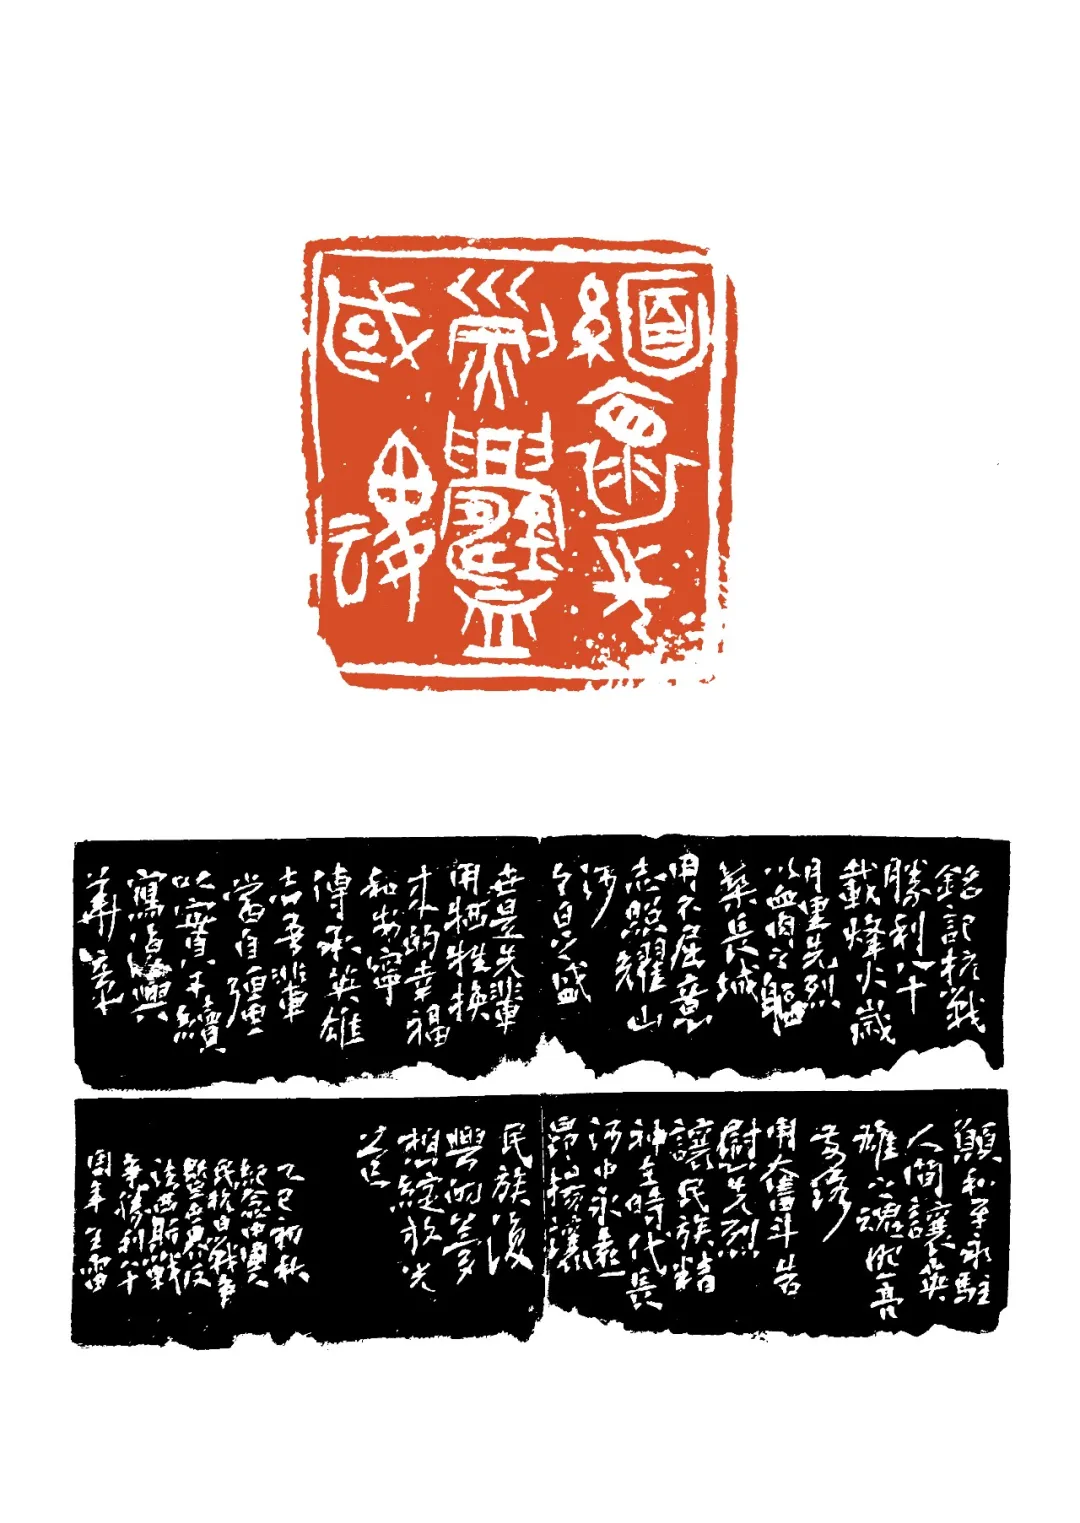 緬懷先
烈鑄
國魂
銘記抗戰
勝利八十
載烽火歲
月裏先烈
以血肉之軀
築長城
用不屈意
志照耀山
河
今日之盛
世是先輩
用犧牲換
來的幸福
和安寧
傳承英雄
志吾輩
當自彊
以實干續
寫復興
華章
願和平永駐
人間讓英
雄之魂照亮
用奮斗告
慰先烈
讓民族精
神在時代長
河中永遠
昂揚讓
民族復
興的夢
想綻放光
芒
乙巳初秋
紀念中國人
民抗日戰爭
暨世界反
法西斯戰
爭勝利八十
周年 王雷